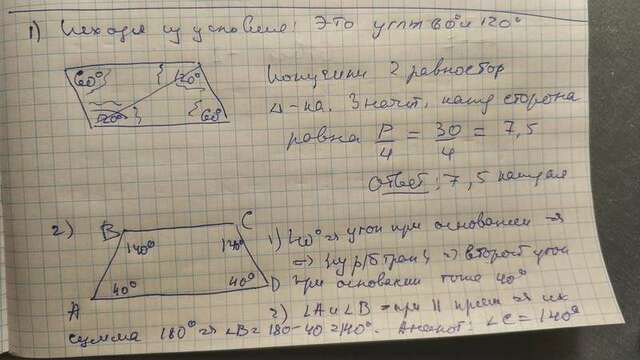 1) Исходя из условия: это углы 60° и 120°
60° 120°
120° 60°
Получили 2 равностор
Δ-ка. Значит, кажд сторона
равна P/4 = 30/4 = 7,5
Ответ: 7,5 каждая
2) B C
140° 140°
40° 40°
A D
1) ∠40° ⇒ угол при основании ⇒
⇒ р/б трап ⇒ второй угол
при основании тоже 40°
2) ∠A и ∠B = при || прям ⇒ их
сумма 180° ⇒ ∠B = 180-40 = 140°. Аналог: ∠C = 140°